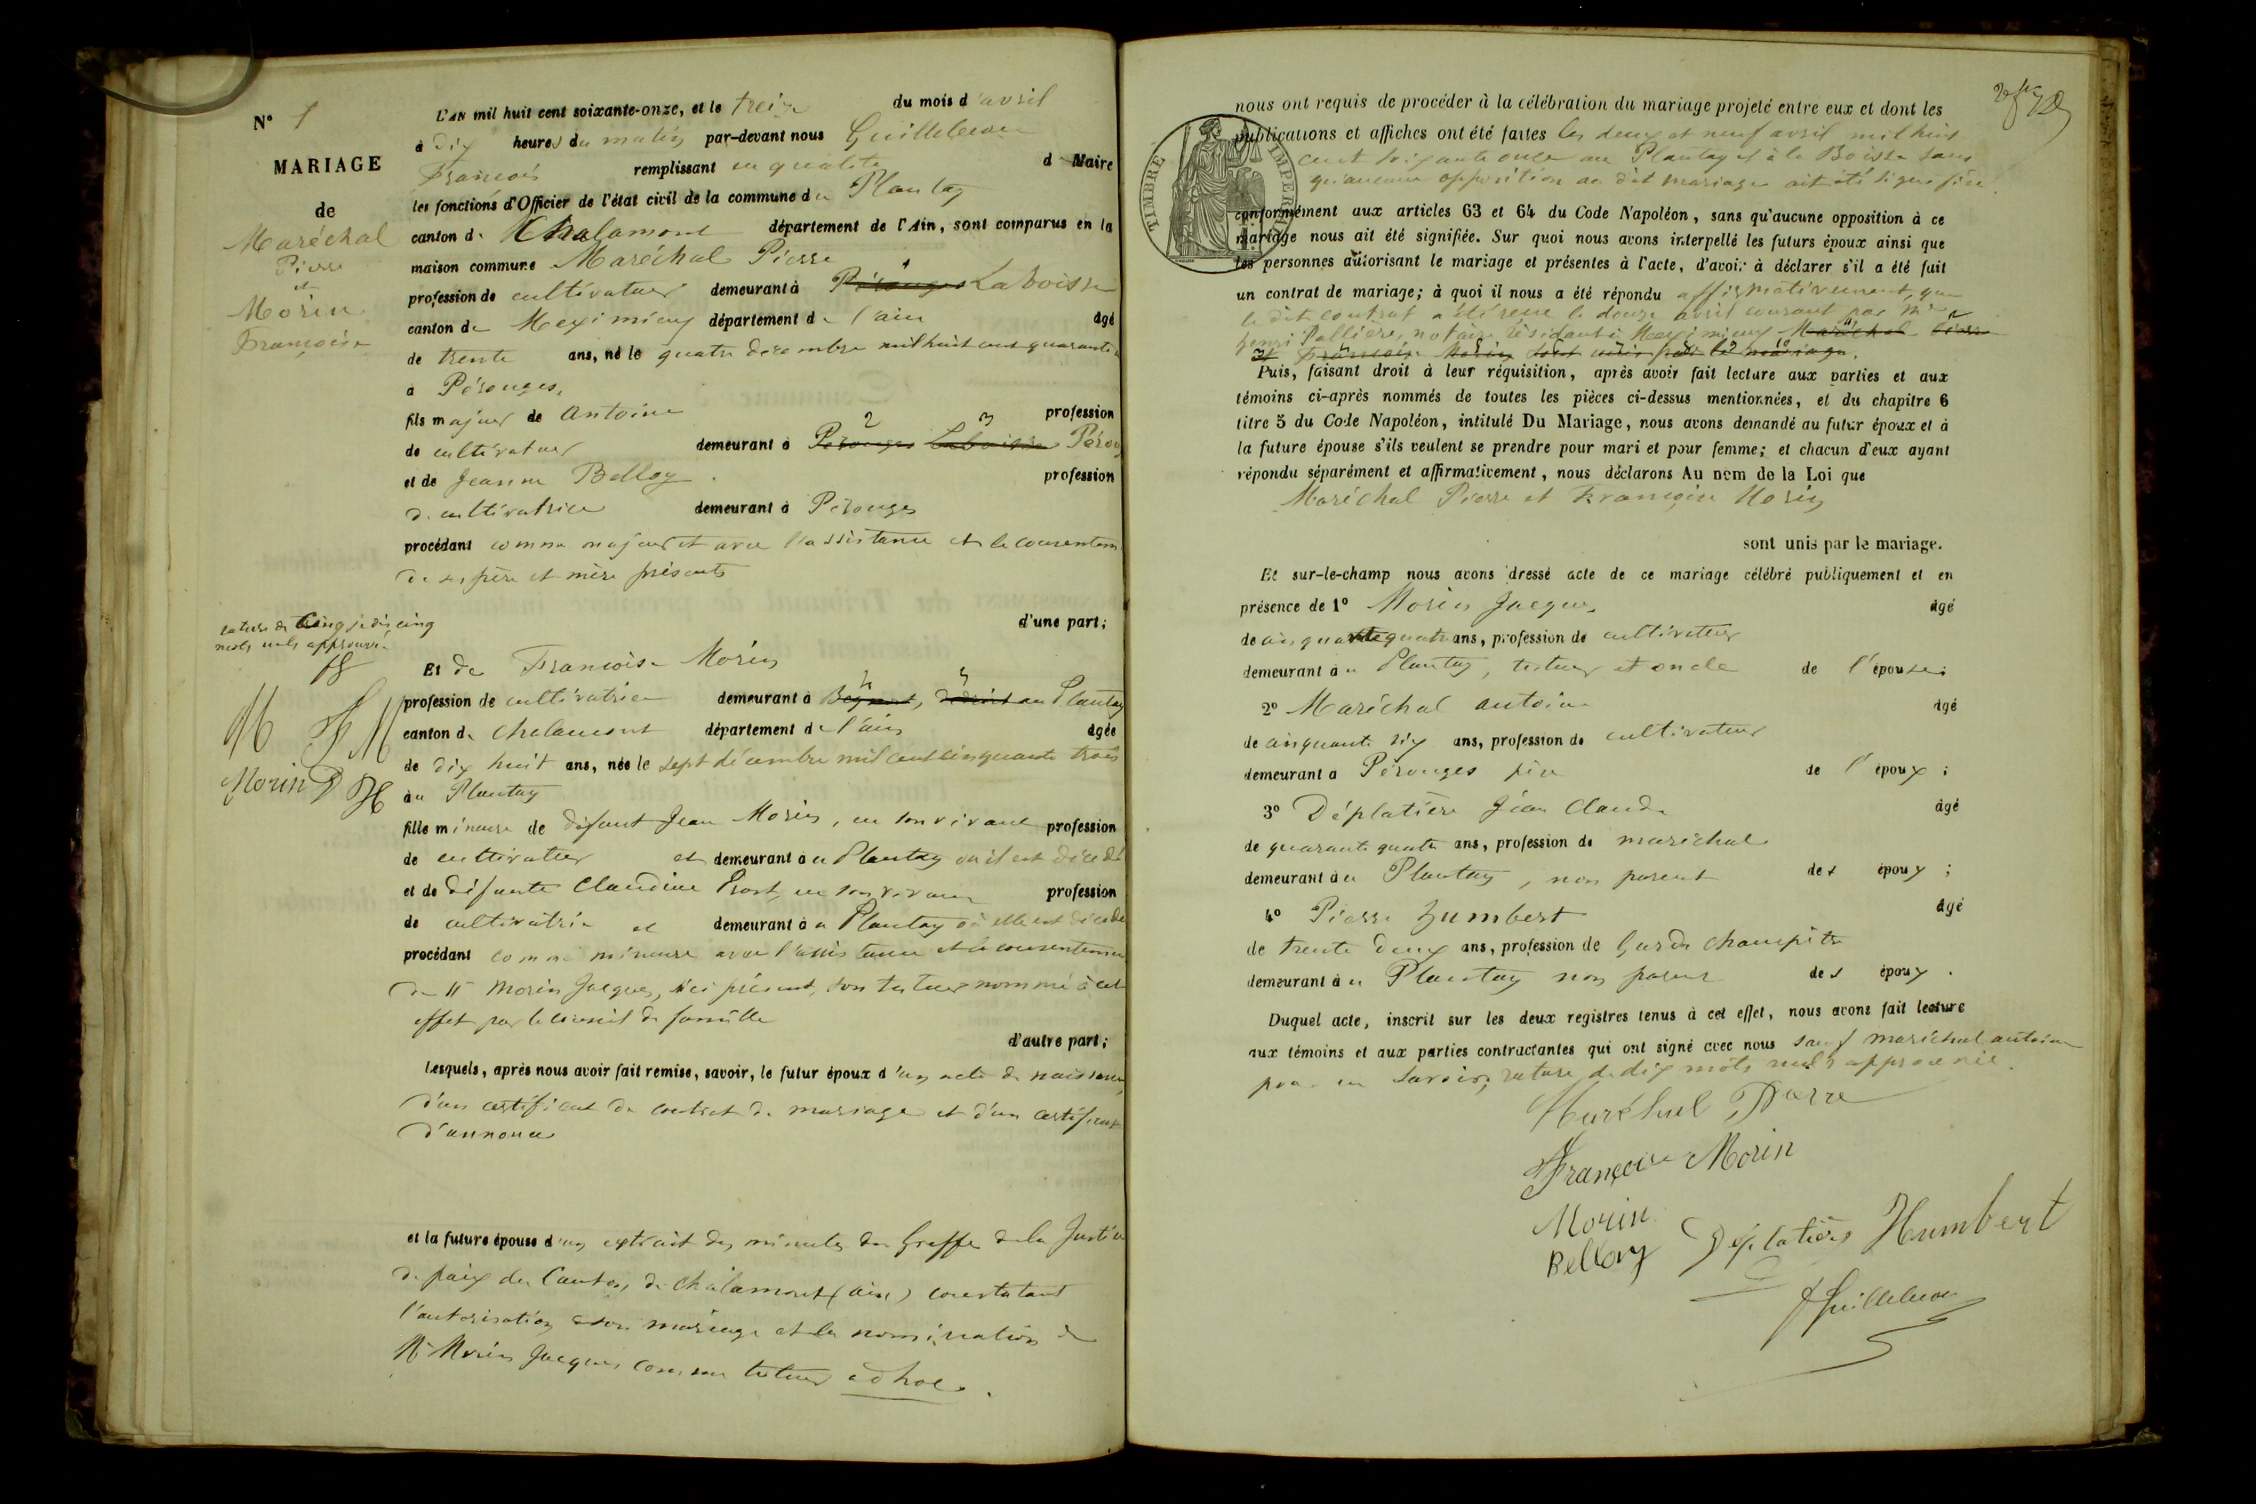 N° 1
MARIAGE
de
Maréchal
Pierre
et
Morin
Françoise
L'AN mil huit cent soixante-onze, et le treize du mois d'avril
à dix heures du matin par-devant nous Guillebeau
François remplissant en qualité de Maire
les fonctions d'Officier de l'état civil de la commune du Plantay
canton de Chalamont département de l'Ain, sont comparus en la
maison commune Maréchal Pierre
1
profession de cultivateur demeurant à Pérouges La boisse
canton de Meximieux département de l'ain âgé
de trente ans, né le quatre décembre mil huit cent quarante
à Pérouges,
fils majeur de Antoine profession
2 3
de cultivateur demeurant à Pérouges Laboisse Péroug
et de Jeanne Belloy profession
de cultivatrice demeurant à Pérouges
procédant comme majeur et avec l'assistance et le consentem
de ses père et mère présents
d'une part;
rature de cinq mots nuls approuvée
M FM
Morin D H
Et de Françoise Morin
4 5
profession de cultivatrice demeurant à au Plantay
canton de chalamont département de l'ain âgée
de dix huit ans, née le sept décembre mil cent cinquante trois
au Plantay
fille mineure de défunt Jean Morin, en son vivant profession
de cultivateur et demeurant au Plantay où il est décédé
et de défunte Claudine Prost, en son vivant profession
de cultivatrice et demeurant au Plantay où elle est décédée
procédant comme mineure avec l'assistance et le consentement
de Mr Morin Jacques, ici présent, son tuteur nommé à cet
effet par le conseil de famille
d'autre part;
Lesquels, après nous avoir fait remise, savoir, le futur époux d'un acte de naissance,
d'un certificat de contrat de mariage et d'un certificat
d'annonces
et la future épouse d'un extrait des minutes du Greffe de la Justice
de paix du Canton de Chalamont (ain) constatant
l'autorisation à son mariage et la nomination de
Mr Morin Jacques comme tuteur ad hoc.
nous ont requis de procéder à la célébration du mariage projeté entre eux et dont les
publications et affiches ont été faites les deux et neuf avril mil huit
cent soixante onze au Plantay et à la Boisse sans
qu'aucune opposition au dit mariage ait été signifiée.
TIMBRE IMPERIAL
conformément aux articles 63 et 64 du Code Napoléon, sans qu'aucune opposition à ce
mariage nous ait été signifiée. Sur quoi nous avons interpellé les futurs époux ainsi que
les personnes autorisant le mariage et présentes à l'acte, d'avoir à déclarer s'il a été fait
un contrat de mariage; à quoi il nous a été répondu affirmativement, que
le dit contrat a été reçu le douze avril courant par Me
henri Pallière, notaire résidant à Meximieux Maréchal Pierre
et Françoise Morin sont unis par le mariage.
Puis, faisant droit à leur réquisition, après avoir fait lecture aux parties et aux
témoins ci-après nommés de toutes les pièces ci-dessus mentionnées, et du chapitre 6
titre 5 du Code Napoléon, intitulé Du Mariage, nous avons demandé au futur époux et à
la future épouse s'ils veulent se prendre pour mari et pour femme; et chacun d'eux ayant
répondu séparément et affirmativement, nous déclarons Au nom de la Loi que
Maréchal Pierre et Françoise Morin
sont unis par le mariage.
Et sur-le-champ nous avons dressé acte de ce mariage célébré publiquement et en
présence de 1° Morin Jacques âgé
de cinquante quatre ans, profession de cultivateur
demeurant au Plantay, tuteur et oncle de l'épouse;
2° Maréchal antoine âgé
de cinquante six ans, profession de cultivateur
demeurant à Pérouges père de l'époux;
3° Déplatière Jean Claude âgé
de quarante quatre ans, profession de maréchal
demeurant au Plantay, non parent des époux;
4° Pierre humbert âgé
de trente deux ans, profession de Garde champêtre
demeurant au Plantay non parent des époux.
Duquel acte, inscrit sur les deux registres tenus à cet effet, nous avons fait lecture
aux témoins et aux parties contractantes qui ont signé avec nous sauf maréchal antoine
pour ne savoir, rature de dix mots nuls approuvée.
Maréchal Pierre
Françoise Morin
Morin
Belloy Déplatière Humbert
f Guillebeau